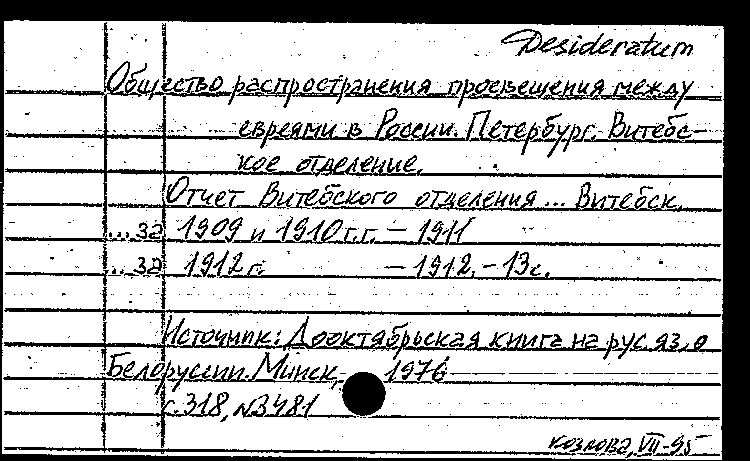 Desideratum
Общество распространения просвещения между
евреями в России. Петербург. Витебс-
кое отделение.
Отчет Витебского отделения... Витебск,
...за 1909 и 1910 г.г. – 1911
...за 1912 г. – 1912. – 13 с.
Источник: Дооктябрьская книга на рус. яз. о
Белоруссии. Минск, 1976
с. 318, №3481
Козлова, VII-95